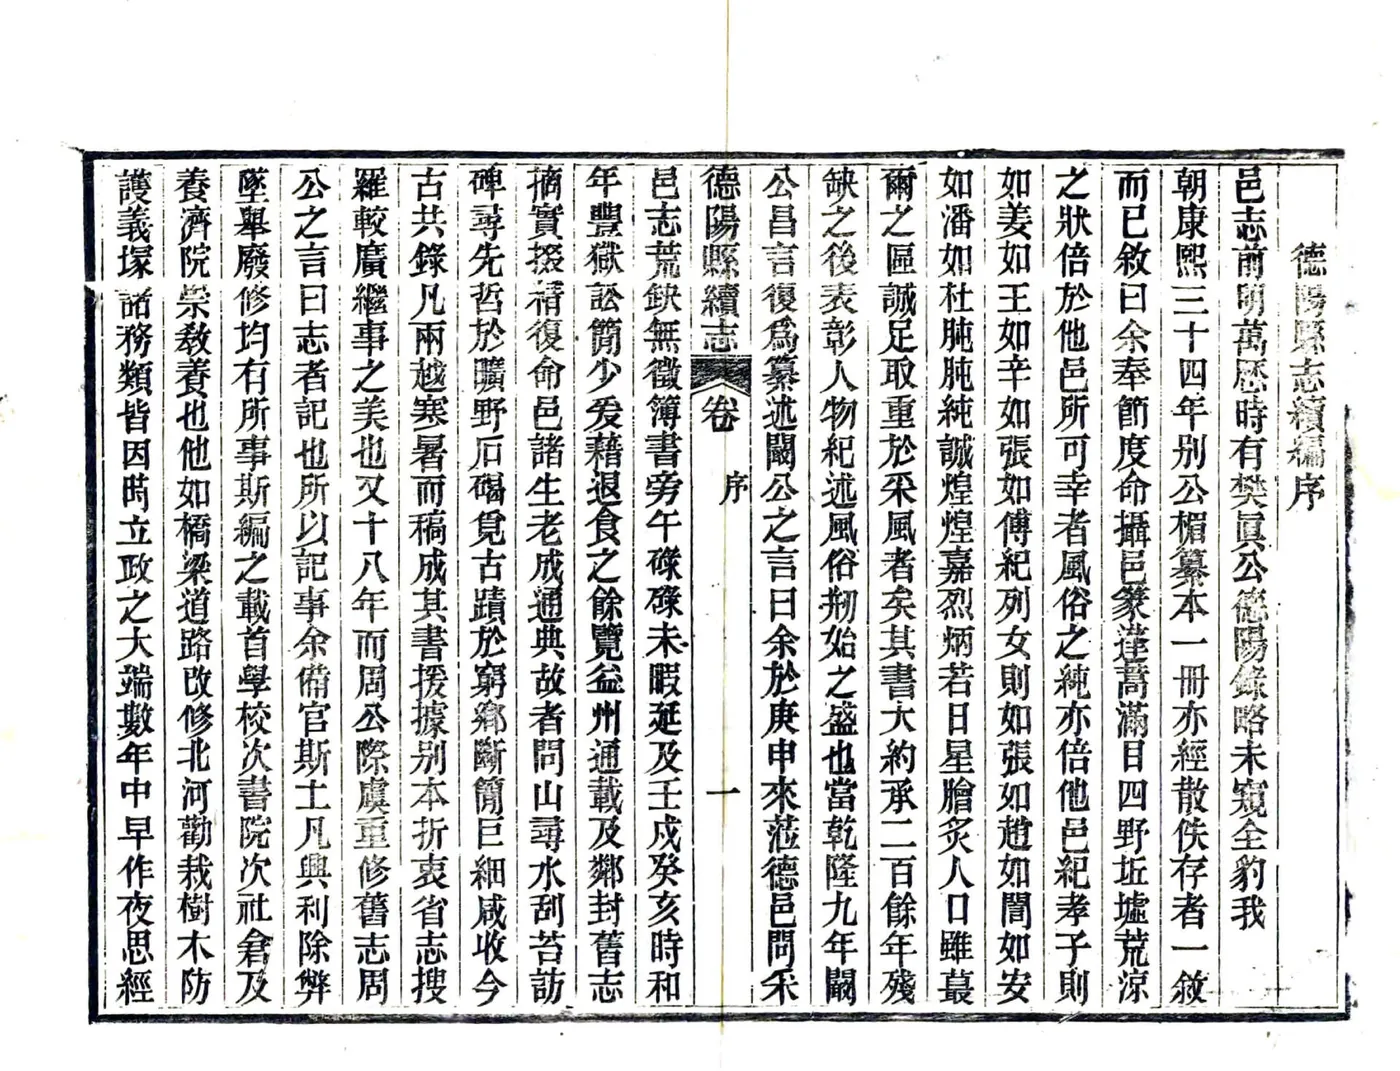 德陽縣志續編序
邑志前明萬歷時有樊眞公德陽錄略未窺全豹我
朝康熙三十四年别公楣纂本一冊亦經散佚存者一敘
而已敘曰余奉節度命攝邑篆蓬蒿滿目四野坵墟荒涼
之狀倍於他邑所可幸者風俗之純亦倍他邑紀孝子則
如姜如王如辛如張如傅紀列女則如張如趙如閻如安
如潘如杜肫肫純誠煌煌嘉烈炳若日星膾炙人口雖蕞
爾之區誠足取重於采風者矣其書大約承二百餘年殘
缺之後表彰人物紀述風俗剏始之盛也當乾隆九年闞
公昌言復爲纂述闞公之言曰余於庚申來蒞德邑問采
德陽縣續志 卷 序 一
邑志荒缺無徵簿書旁午碌碌未暇延及壬戌癸亥時和
年豐獄訟簡少爰藉退食之餘覽益州通載及鄰封舊志
摘實掇精復命邑諸生老成通典故者問山尋水刮苔訪
碑尋先哲於曠野石碣覓古蹟於窮鄉斷簡巨細咸收今
古共錄凡兩越寒暑而稿成其書援據别本折衷省志搜
羅較廣繼事之美也又十八年而周公際虞重修舊志周
公之言曰志者記也所以記事余備官斯土凡興利除弊
墜舉廢修均有所事斯編之載首學校次書院次社倉及
養濟院崇敎養也他如橋梁道路改修北河勸栽樹木防
護義塚諸務類皆因時立政之大端數年中早作夜思經